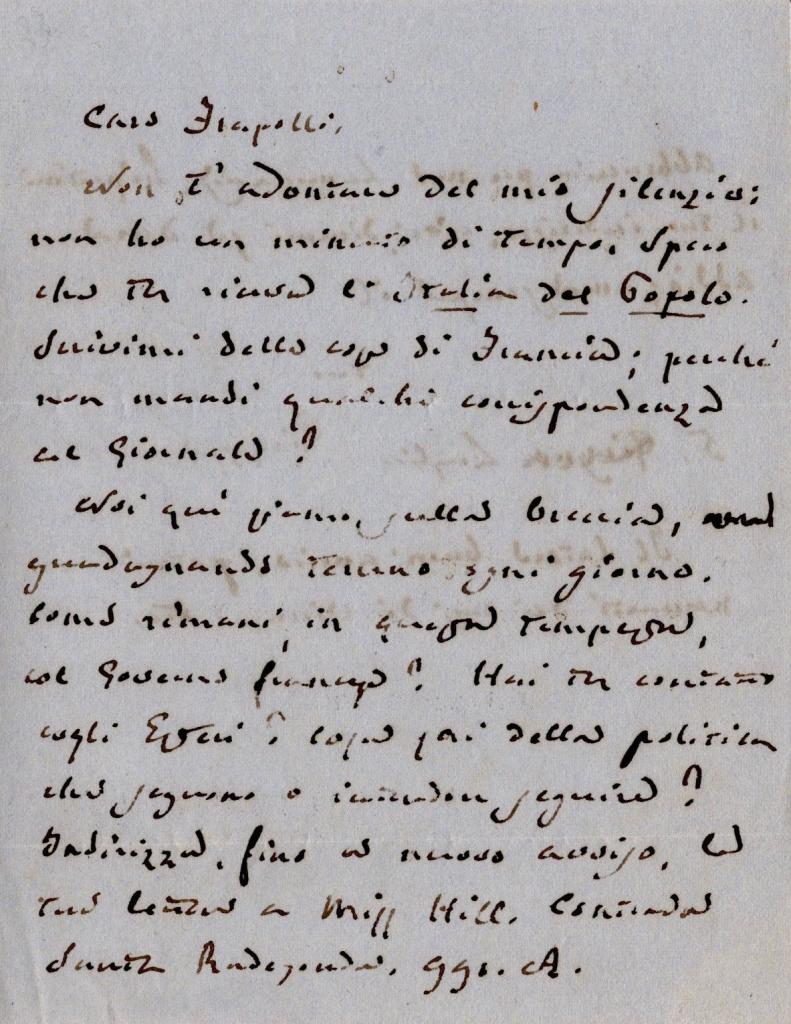 Caro Frapolli,
Non t'adontare del mio silenzio:
non ho un minuto di tempo. Spero
che tu riceva l'Italia del Popolo.
Scrivimi delle cose di Francia; perché
non mandi qualche corrispondenza
al Giornale?
Noi qui siamo sulla breccia,
guadagnando terreno ogni giorno.
Come rimani, in questa tempesta,
col Governo francese? Hai tu contatto
cogli Esteri? Cosa sai della politica
che seguono o intendon seguire?
Indirizza, fino a nuovo avviso, le
tue lettere a Miss Hill. Contrada
Santa Radegonda. 991. A.